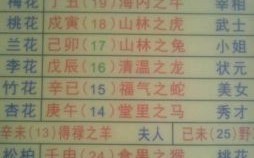 梅花 丁丑(19) 海内之牛 宰相
桃花 戊寅(18) 山林之虎 武士
兰花 己卯(17) 山林之兔 小姐
李花 戊辰(16) 清温之龙 状元
竹花 辛巳(15) 福气之蛇 美女
杏花 庚午(14) 堂里之马 秀才
辛未(13)得禄之羊 夫人 己未(25)野
松柏 壬申(24) 食果之猴 桃花